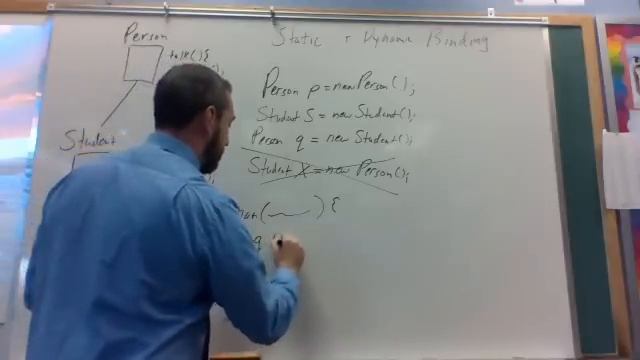 Static + Dynamic Binding
Person
talk(){
Student
Person p = new Person();
Student S = new Student();
Person q = new Student();
Student X = new Person();
){
q